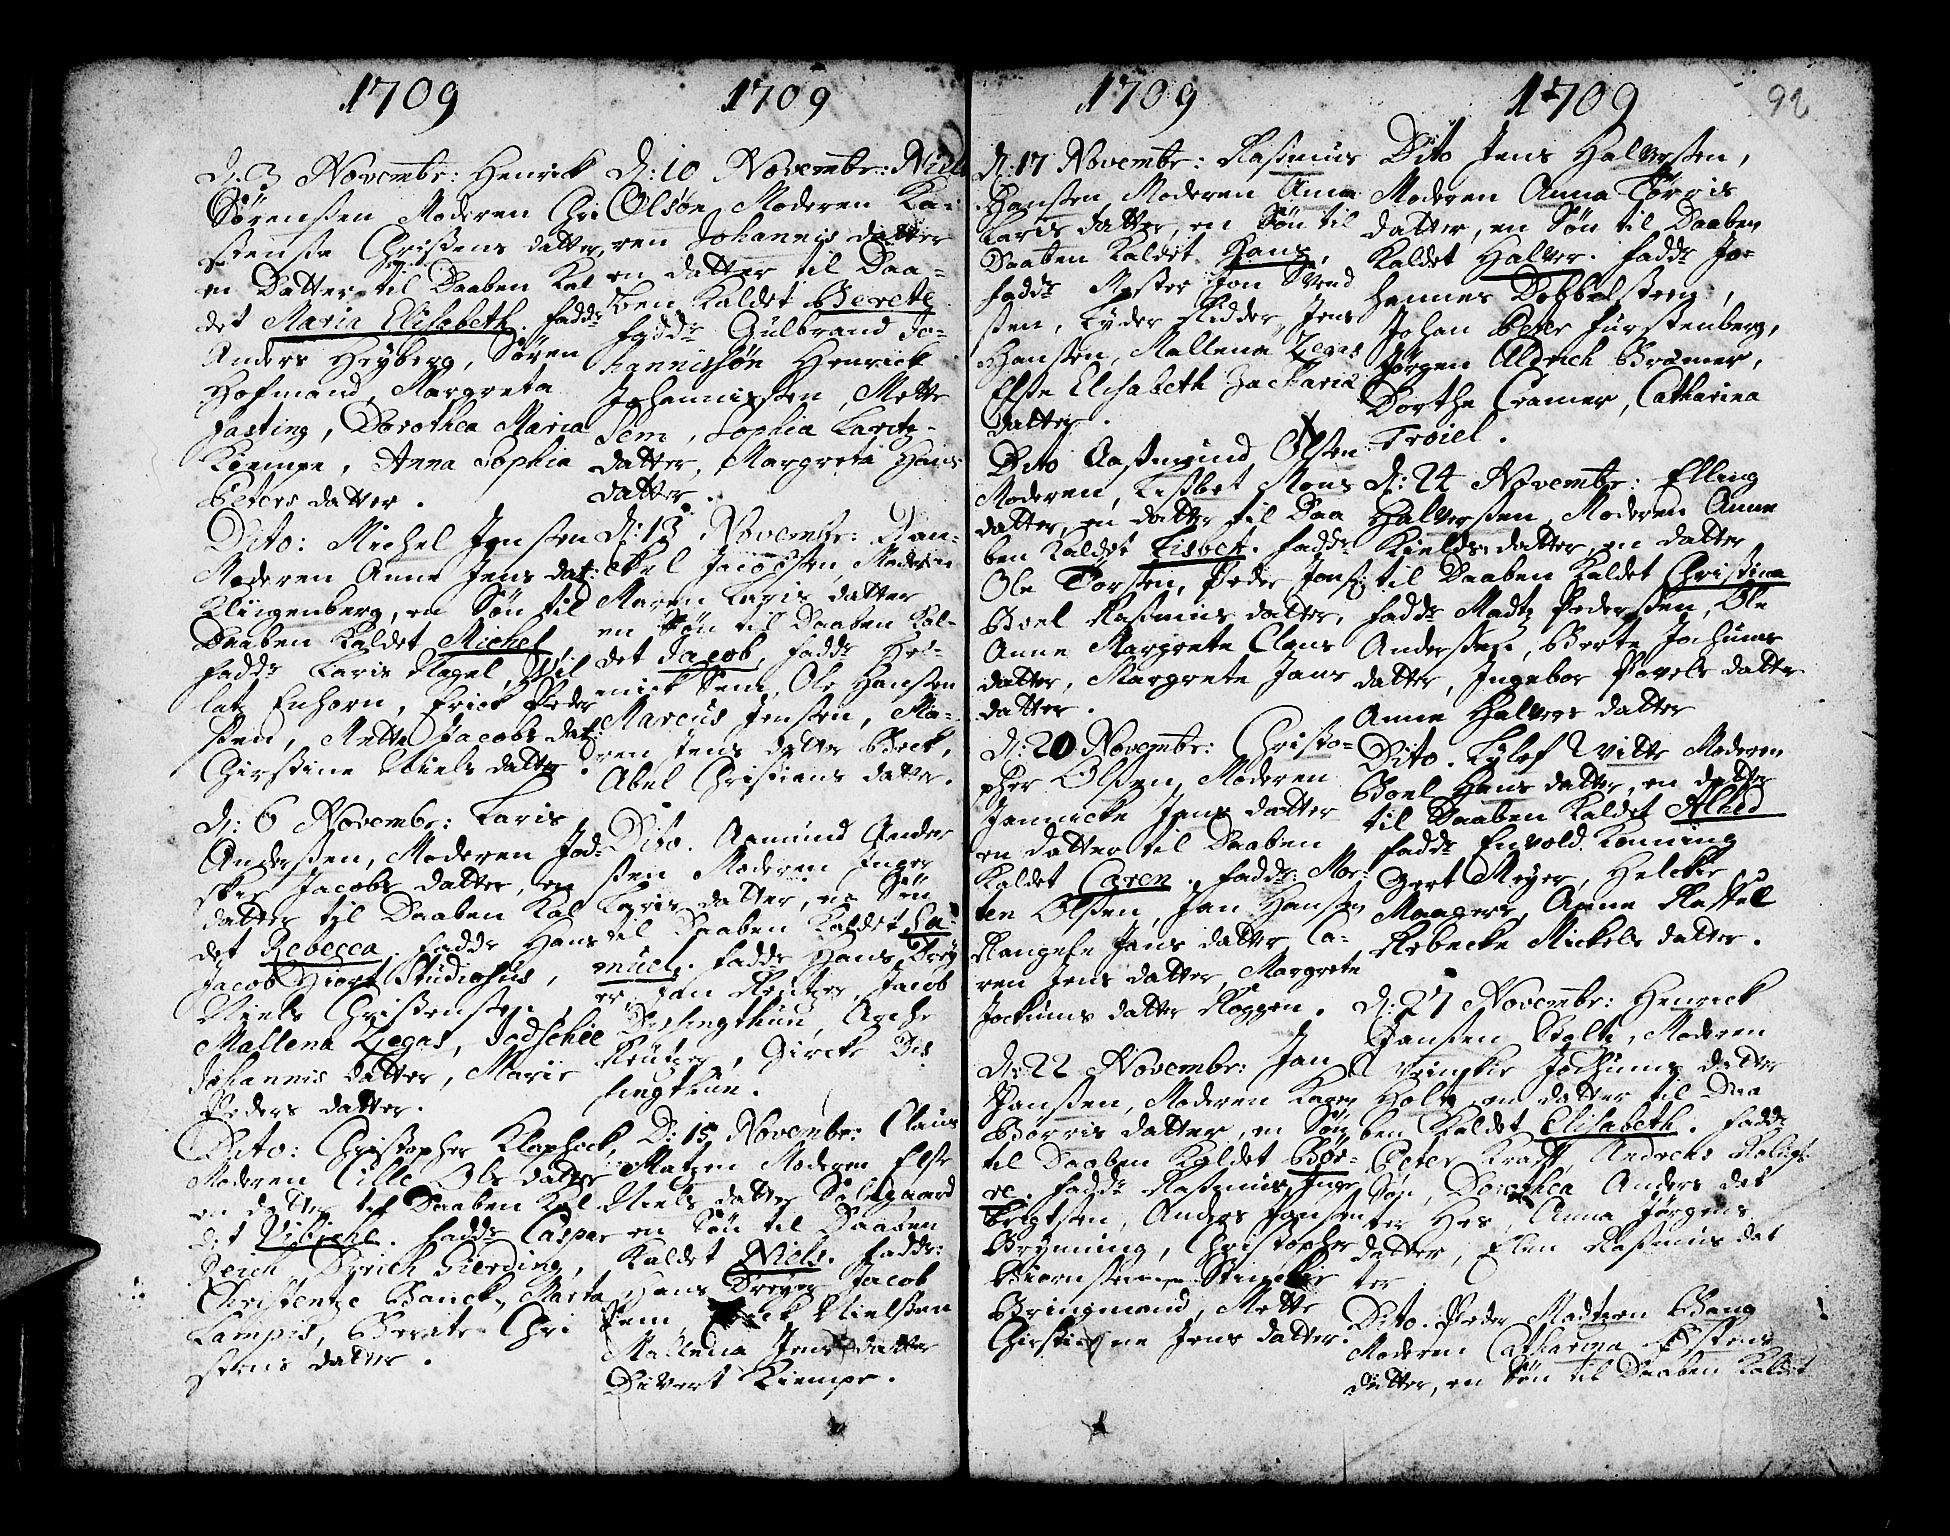 1709
d. 3 Novembr: Henrick
Sörensen Moderen Chri
stensie Christens datter,
en Datter til Daaben Kal
det Maria Elisabeth. fadd:
Anders Heyberg, Sören
Hofmand, Margreta
Fasting, Dorothea Maria
Kiempe, Anna Sophia
Peters datter.
Dito: Michel Jensen
Moderen Anne Jens dat:
Klingenberg, en Sön til
Daaben Kaldet Michel
fadd: Laris Nagel, Wil
latz Enhorn, Erick Peder
sen, Mette Jacobs dat:
Chirstine Niels datter.
d: 6 Novembr: Laris
Andersen, Moderen Jod-
skie Jacobs datter, en
datter til Daaben Kal
det Rebecca. fadd: Hans
Jacob Hiort Studiosus,
Niels Christensen
Mallena Zegas, Jodschie
Johannis datter, Marie
Peders datter.
Dito: Christopher Klaphack,
Moderen Cille Ols datter
en datter til Daaben Kal
det Vibicke. fadd: Casper
Reich, Dirich Gierding,
Christentze Banck, Marta
Lampis, Berete Chri
stens datter.
1709
d: 10 Novembr: Niels
Olsön Moderen Ka-
ren Johannis datter
en datter til Daa-
ben Kaldet Berete
fadd: Gulbrand Jo-
hannissön Henrick
Johannissen, Mette
Sem, Sophia Laritz-
datter, Margreta Hans
datter.
d: 13 Novembr: Dan-
ckel Jacobsen, Moderen
Maren Laris datter
en Sön til Daaben Kal-
det Jacob, fadd: Hen-
rick Sem, Ole Hansen
Marcus Jensen, Ma-
ren Jens datter Beck,
Abel Christians datter.
Dito. Aamund Ander
sen Moderen Inger
Laris datter, en Sön
til Daaben Kaldet Sa-
muel. fadd: Hans Drey
er, Jan Reutzer, Jacob
Disingthun, Anche
Reutzer, Gircke Dis
singthun.
D: 15 Novembr: Claus
Matzen Moderen Else
Niels datter Sölgaard
en Sön til Daaben
Kaldet Niels. fadd:
Hans Dreyer Jacob
Sem, Nielsen
Mallena Jens datter
Divert Kiempe.
1709
d: 17 Novembr: Rasmus
Hansen, Moderen Anna
Laris datter, en Sön til
Daaben Kaldet Hans,
fadd: Mester Jon Svend
sen, Lyder Ridder, Jens
Hansen, Mallena Zegas
Else Elisabeth Zacharia
datter.
Dito Aasmund Olsen
Moderen, Lisbet Mons
datter, en datter til Daa
ben Kaldet Lisbet. fadd:
Ole Torsen, Peder Jons:
Boel Rasmus datter,
Anne Margrete Clans
datter, Margrete Jans
datter.
d: 20 Novembr: Christo-
pher Olsen, Moderen
Jannicke Jans datter
en datter til Daaben
Kaldet Caren. fadd: Mor-
ten Olsen, Jan Hansen
Rangele Jans datter, Ca-
ren Jens datter, Margrete
Jochums datter Koppen.
d: 22 Novembr: Jan
Hansen, Moderen Karen
Börris datter, en Sön
til Daaben Kaldet Bör-
re. fadd: Rasmus Inge
brigtsen, Anders Jonsen
Bryning, Christopher
Biörnsen, Stincke
Bringmand, Mette
Chirstine Jens datter.
1709
92
Dito Jens Halversen,
Moderen Anna Törris
datter, en Sön til Daaben
Kaldet Halver. fadd: Jo-
hannes Dobbelsteen,
Johan Peter Fürstenberg,
Jörgen Aldrich Brämer,
Dorthe Cramer, Catharina
Troiel.
d: 24 Novembr: Elling
Halversen, Moderen Anne
Kields datter, en datter
til Daaben Kaldet Christina
fadd: Madtz Pedersen, Ole
Andersen, Berte Jochums
datter, Ingebor Povels datter
Anne Halvers datter
Dito. Lylof Witte Moderen
Boel Hans datter, en datter
til Daaben Kaldet Alhed
fadd: Envold Koning
Gert Meyer, Helckie
Maagers, Anne Kastel
Rebecke Mickels datter.
d: 27 Novembr: Henrick
Jansen Bolte, Moderen
Wimpkie Jochums datter
Holt, en datter til Daa
ben Kaldet Elisabeth. fadd:
Peter Krafft, Andreas
Sön, Dorothea Anders dat
ter Hes, Anna Jörgens
datter, Elen Rasmus dat
ter
Dito. Peder Madtzen Bang
Moderen Catharina
datter, en Sön til Daaben Kaldet